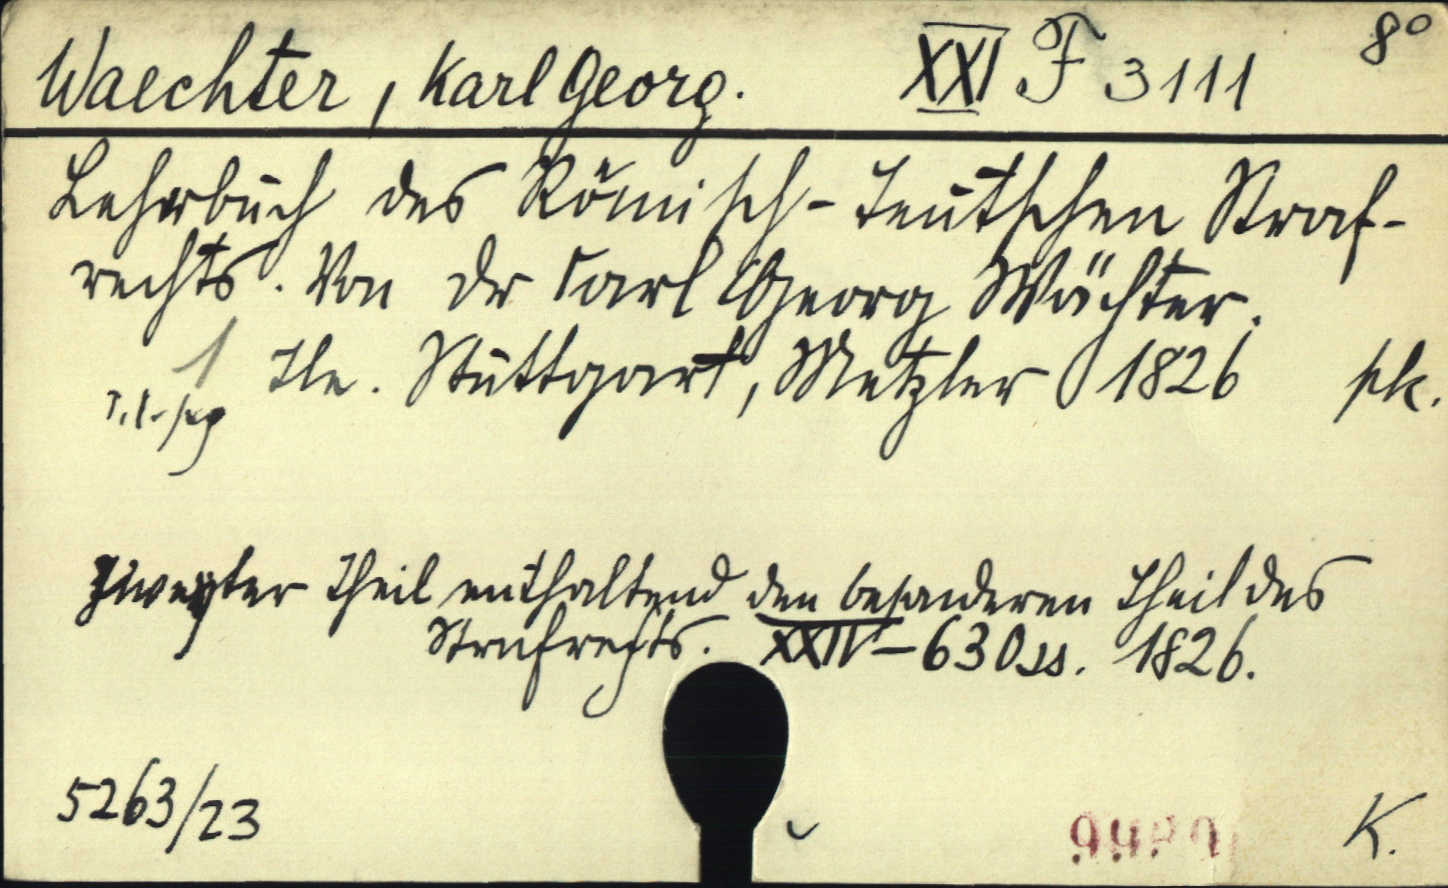 Waechter, Karl Georg. XXI F 3111 8°
Lehrbuch des Römisch-Teutschen Straf-
rechts. Von Dr Carl Georg Wächter.
1 Tle. Stuttgart, Metzler 1826 sk.
Zweyter Theil enthaltend den besonderen Theil des
Strafrechts. XXIV-630 ss. 1826.
5263/23 K.